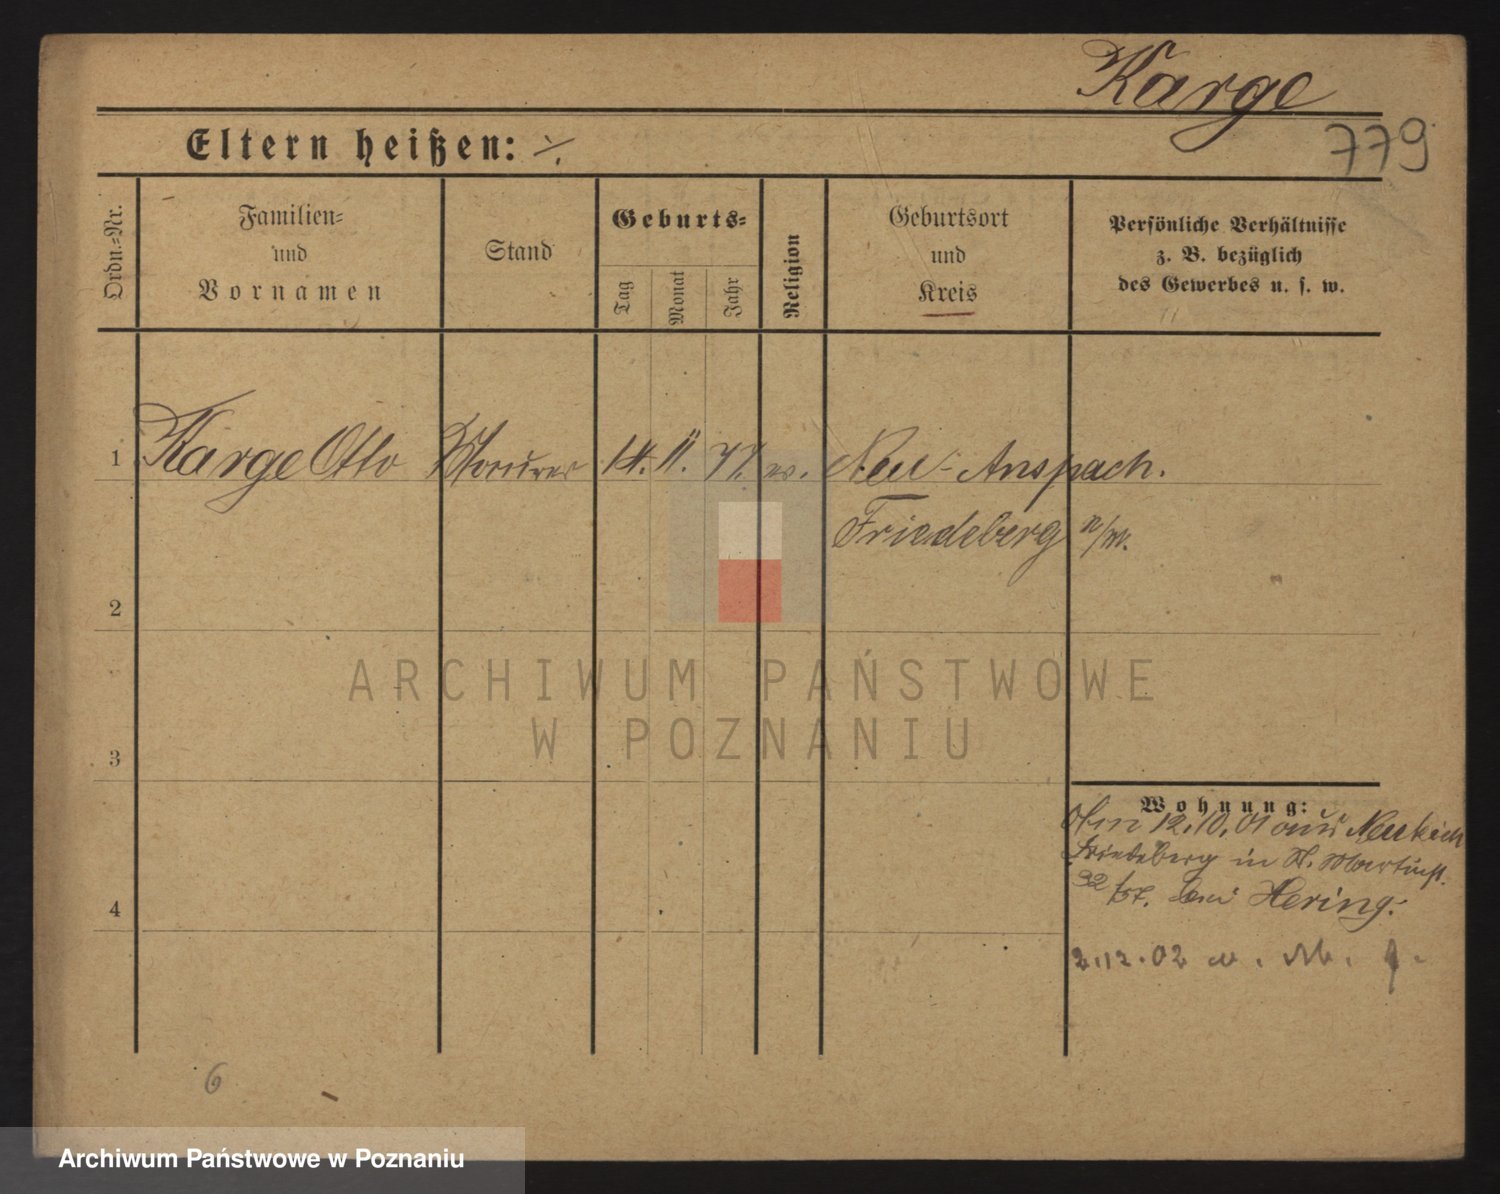 Karge
779
Eltern heißen: ./.
Ordn.-Nr.
Familien-
und
Vornamen
Stand
Geburts-
Tag
Monat
Jahr
Religion
Geburtsort
und
Kreis
Persönliche Verhältnisse
z. B. bezüglich
des Gewerbes u. s. w.
1 Karge Otto Maurer 14. 11. 77. ev. Neu-Anspach.
Friedeberg n/m.
2
ARCHIWUM PAŃSTWOWE
W POZNANIU
3
Wohnung:
12.10.01 aus
Friedeberg in St. Martinst.
32 bei Hering.
4
2.12.02
6
Archiwum Państwowe w Poznaniu